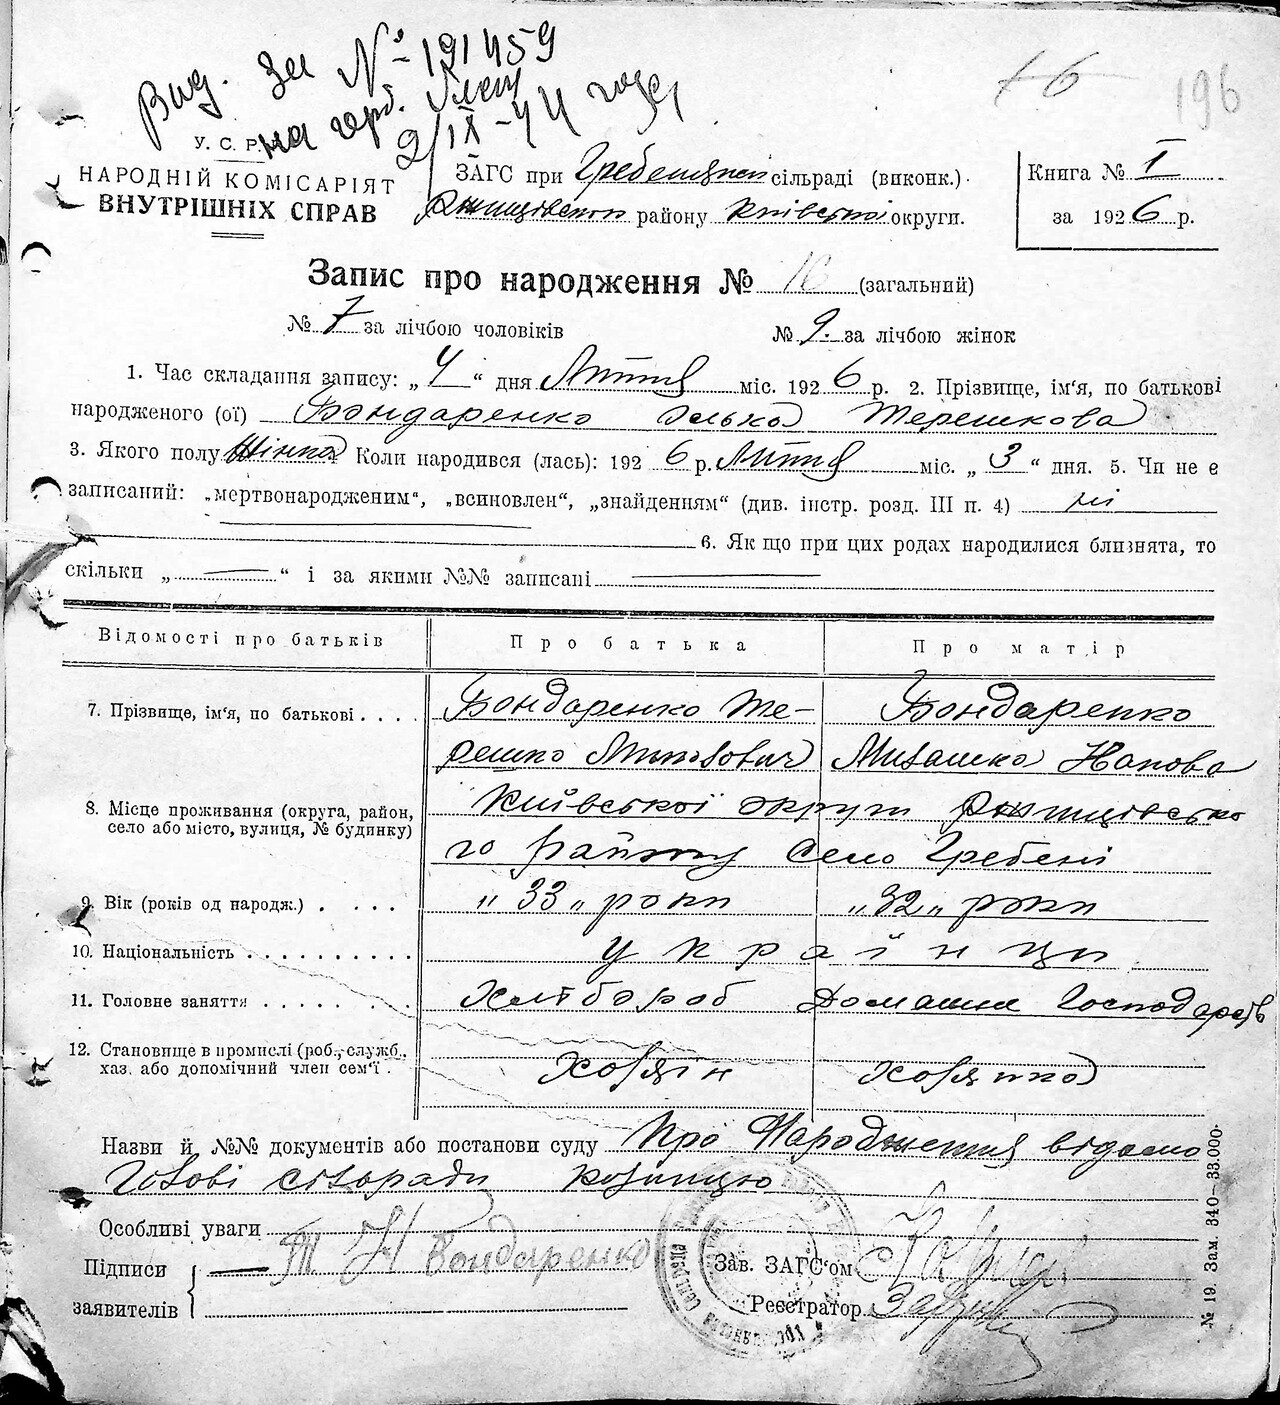 Вид. за № 191459
на герб.
2/IX-44 года
196
У. С. Р.
НАРОДНІЙ КОМІСАРІЯТ
ВНУТРІШНІХ СПРАВ
ЗАГС при Гребенцкой сільраді (виконк.).
Ржищівского району Київської округи.
Книга № I
за 1926 р.
Запис про народження № 16 (загальний)
№ 7 за лічбою чоловіків № 9. за лічбою жінок
1. Час складання запису: „ 4 “ дня Лютня міс. 1926 р. 2. Прізвище, ім‘я, по батькові
народженого (ої) Бондаренко Олька Терешкова
3. Якого полу Жінка Коли народився (лась): 1926 р. Лютня міс. „ 3 “ дня. 5. Чи не є
записаний: „мертвонародженим“, „всиновлен“, „знайденням“ (див. інстр. розд. III п. 4) ні
6. Як що при цих родах народилися близнята, то
скільки „ — “ і за якими №№ записані —
Відомості про батьків Про батька Про матір
7. Прізвище, ім‘я, по батькові Бондаренко Те- Бондаренко
решко Миковович Мила́шка
8. Місце проживання (округа, район, Київської округи Ржищівсько
село або місто, вулиця, № будинку) го Району Село Гребені
9. Вік (років од народж.) „33„ роки „32„ роки
10. Національність українци
11. Головне заняття Хлібороб Домашнє Господарств
12. Становище в промислі (роб., служб.,
хаз. або допомічний член сем‘ї Хозяін Хозяика
Назви й №№ документів або постанови суду Про Народження відомо
Голові сільради
Особливі уваги
Підписи Т Н Бондаренко Зав. ЗАГС‘ом
заявителів Реєстратор
№ 19. Зам. 340—33.000.